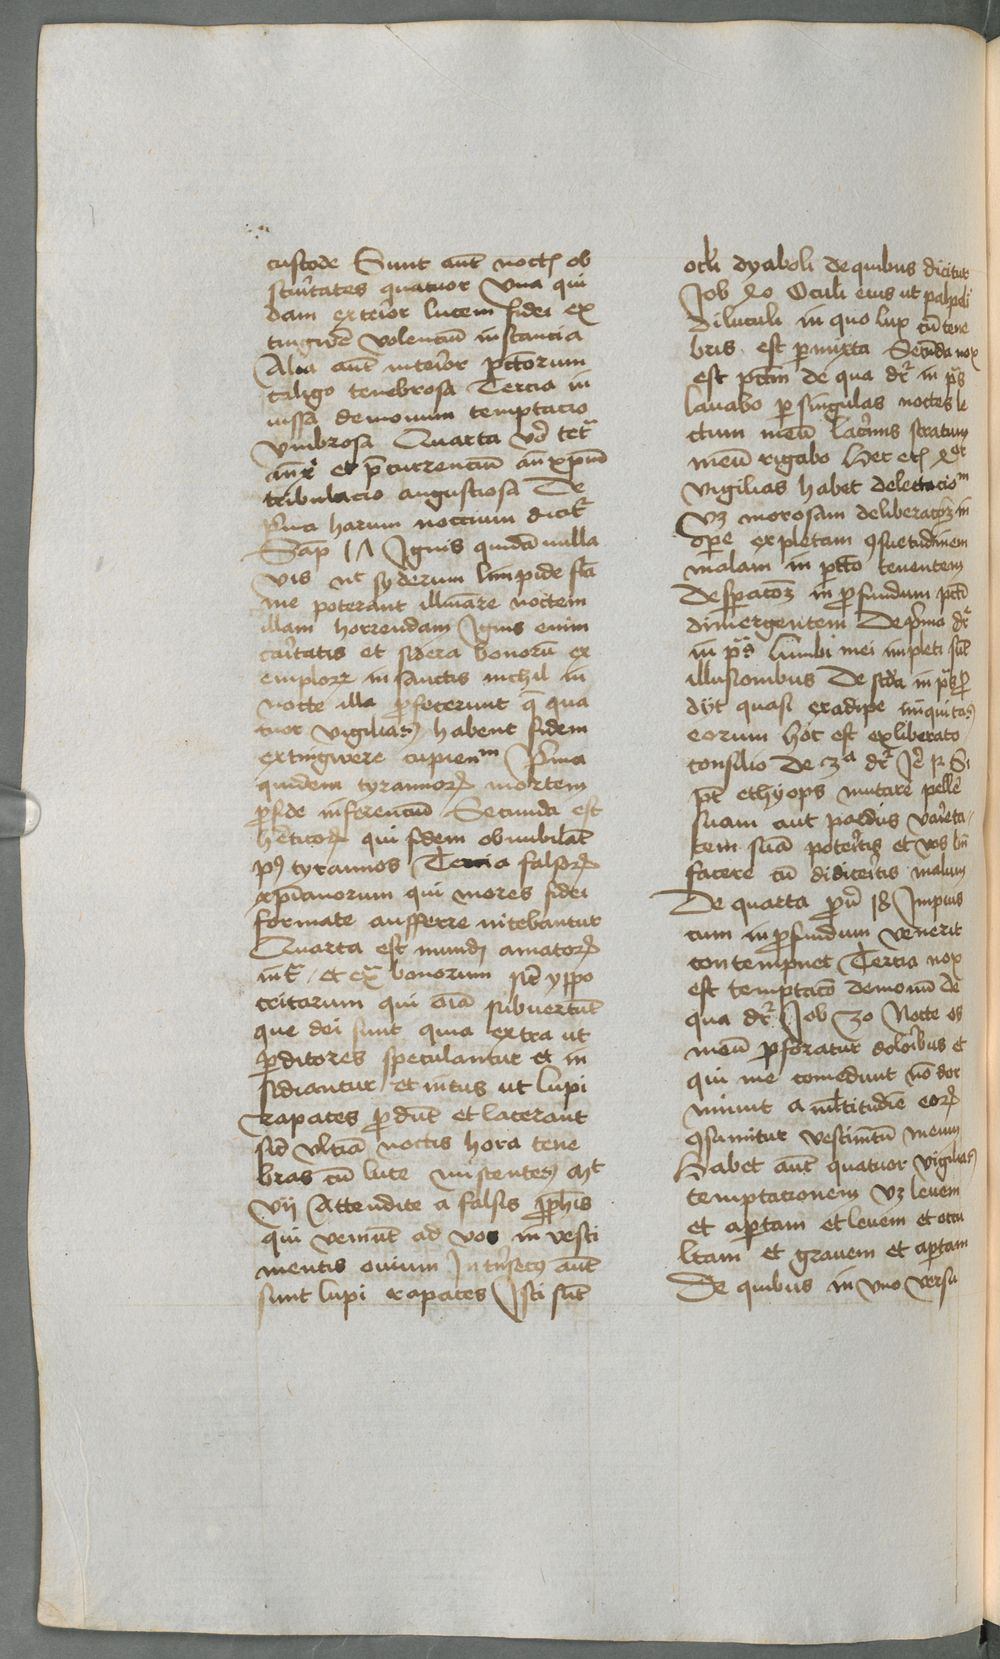 custode Sunt aūt noctꝭ ob
scūitates quatuor Una qui
dam exterior lucem fidei ex
tingwe͞e volenciū instancia
Alia aūt interior pctorum
caligo tenebrosa Tercia in
missa demonum temptacio
umbrosa Quarta
et p̄currenciū anxpm̄
tribulacio angustiosa De
pͥma harum noccium dicitᷣ
Sap 17 Ignis quidā nulla
vis nec syderum limpide fla
me poterant illūare noctem
illam horrendam Ignis enim
caͥtatis et sidera bonorū ex
emploꝝ in sanctis nichil in
nocte illa ꝓfecerunt q̄ qua
tuor vigilias habent fidem
extingwere cupienᵐ Pͥma
quidem tyrannoꝝ mortem
ꝓ fide inferenciū Secunda est
he͞ticoꝝ qui fidem obnubilāt
pꝯ tyrannos Tercia falsoꝝ
xp̄ianorum qui mores fidei
formate aufferre nitebantur
Quarta est mundi amatoꝝ
et bonorum sic̄ ypo
critarum qui oīa subvertūt
que dei sunt quia extra ut
ꝓditores speculantur et in
sidiantur et intus ut lupi
rapaces ꝑdūt et lacerant
sic̄ ultīa noctis hora tene
bras cū luce miscentes Mᵗ
vij Attendite a falsis ꝓphīs
qui veniūt ad vos in vesti
mentis ovium Intͥnsecꝰ aūt
sunt lupi rapaces Isti sūt
ocl̄i dyaboli de quibus dicitur
Job 40 Oculi eius ut palpebͥ
diluculi in quo lux cū tene
bris est ꝑmixta Secūda nox
est pctm̄ de qua drᷣ in pͣs
lavabo ꝑ singulas noctes le
ctum meū lacͥmis stratum
meū rigabo Hec
vigilias habet delectacioᵐ
vꝫ morosam deliberacōeꝫ in
oꝑe expletam ꝯsuetudinem
malam in pctō tenentem
desꝑacōeꝫ in ꝓfundum pctī
dimergentem De pͥma drᷣ
in pͣs Lumbi mei impleti sūt
illusionibus De scd̄a in pͣs
dijt quasi ex adipe iniquitas
eorum hoc est ex liberato
consilio De 3ᵃ drᷣ Je͞ 13 Si
pt̄ ethyops mutare pellē
suam aut pardus vaͥrieta
tem suā poteͥtis et vos bn̄
facere cū didiceͥtis malum
De quarta ꝓū 18 Impius
cum in ꝓfundum venerit
contempnet Tercia nox
est temptacō demonū de
qua drᷣ Job 30 Nocte os
meū ꝑforatur doloͥbus et
qui me comedunt nō dor
miunt a mltitudīe eoꝝ
ꝯsumitur vestimtū meum
Habet aūt quatuor vigilias
temptationem vꝫ levem
et aꝑtam et levem et occu
ltam et gravem et aꝑtam
De quibus in uno versu